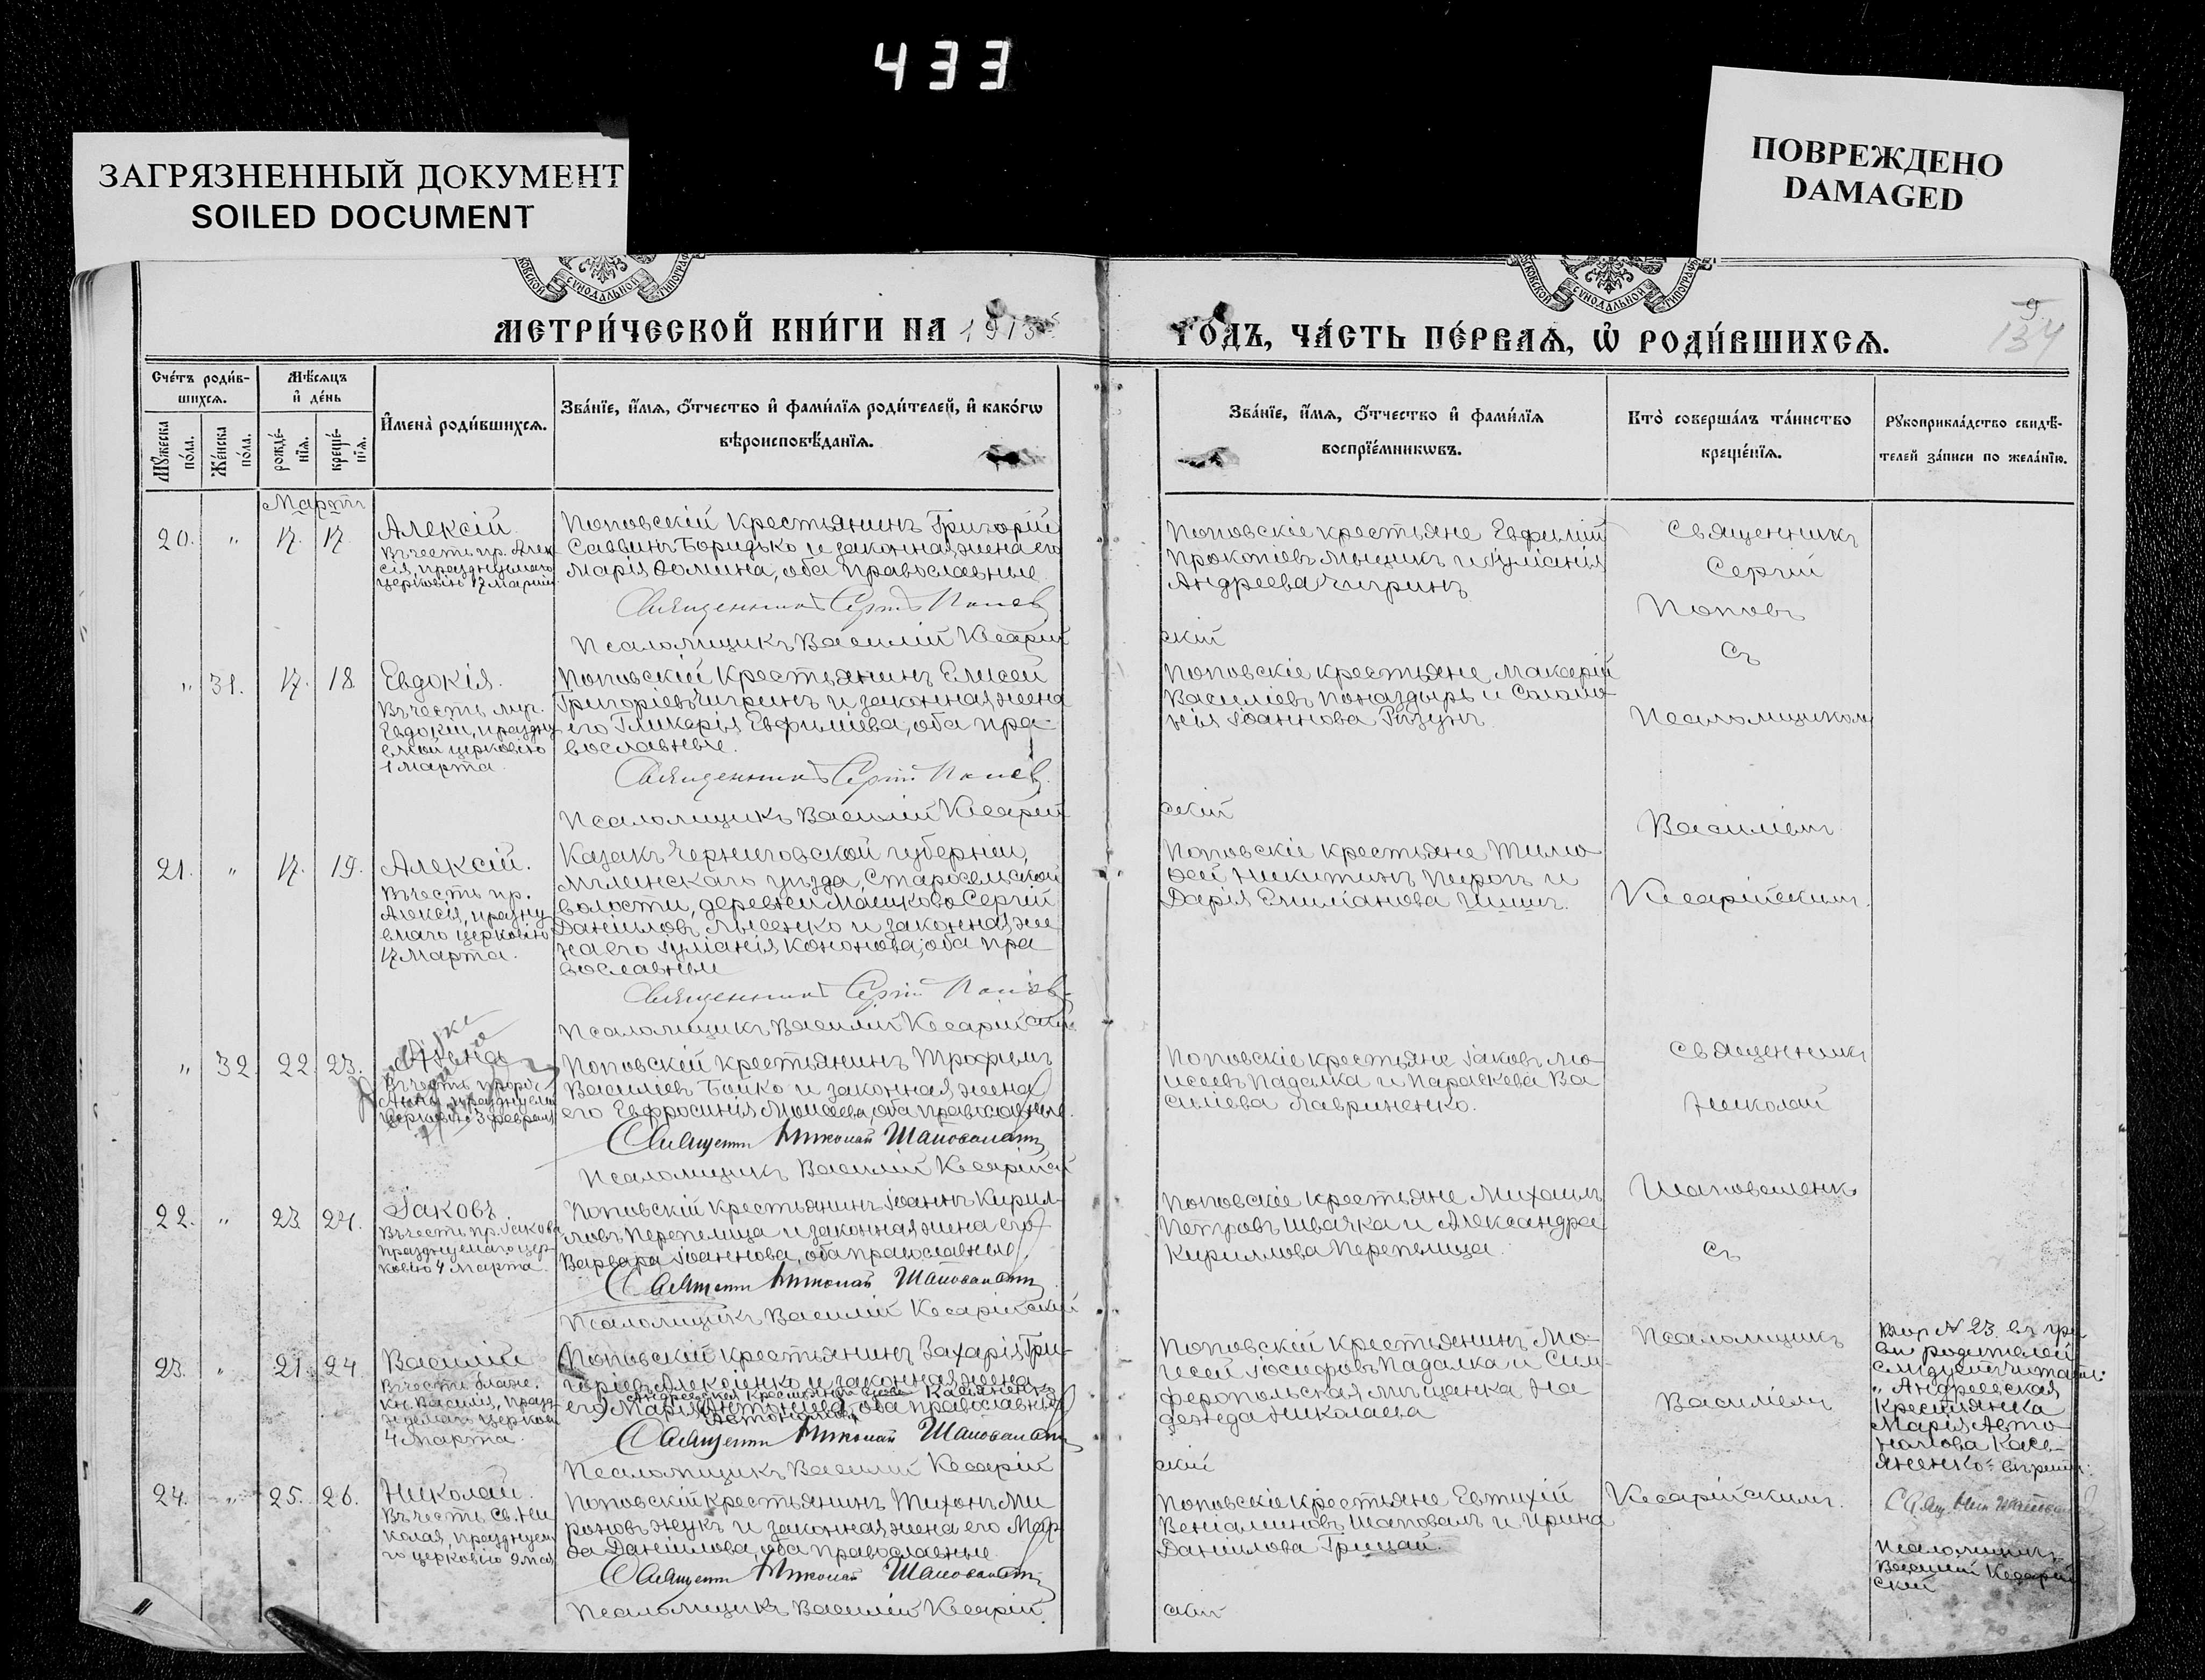 433
ЗАГРЯЗНЕННЫЙ ДОКУМЕНТ
SOILED DOCUMENT
ПОВРЕЖДЕНО
DAMAGED
МОСКОВСКОЙ СѴНОДАЛЬНОЙ ТИПОГРАФ
МОСКОВСКОЙ СѴНОДАЛЬНОЙ ТИПОГРАФ
МЕТРИ́ЧЕСКОЙ КНИ́ГИ НА 1913
ГО́ДЪ, ЧА́СТЬ ПЕ́РВАѦ, Ѡ҆ РОДИ́ВШИХСѦ.
9
134
Сче́тъ роди́в-
шихсѧ.
Мꙋ́жеска по́ла.
Же́нска по́ла.
Мѣ́сѧцъ
и҆ де́нь
рожде́-
нїѧ.
креще́-
нїѧ.
И҆мена̀ роди́вшихсѧ.
Зва́нїе, и҆́мѧ, ѻ҆́тчество и҆ фами́лїѧ роди́телей, и҆ како́гѡ
вѣроисповѣ́данїѧ.
Зва́нїе, и҆́мѧ, ѻ҆́тчество и҆ фами́лїѧ
воспрїе́мникѡвъ.
Кто̀ соверша́лъ та́инство
креще́нїѧ.
Рꙋкоприкла́дство свидѣ́-
телей за́писи по жела́нїю.
Мартъ
20. " 17. 17.
Алексій.
Въ честь пр. Алек
сія, празднуемаго
церковію 17 марта
Поповскій крестьянинъ Григорій
Саввинъ Боридько и законная жена его
Марія Ѳомина, оба православные
Священникъ Сергій Поповъ
Псаломщикъ Василій Кесарій
скій
Поповскіе крестьяне Евфимій
Прокопіевъ Мыцикъ и Іуліанія
Андреева Чигринъ
Священникъ
Сергій
Поповъ
съ
" 31. 17. 18.
Евдокія.
Въ честь муч.
Евдокіи, праздну
емой церковію
1 марта.
Поповскій крестьянинъ Елисей
Григоріевъ Чигринъ и законная жена
его Гликерія Евфиміева, оба пра-
вославные.
Священникъ Сергій Поповъ
Псаломщикъ Василій Кесарій
скій
Поповскіе крестьяне Макарій
Василіевъ Поназдырь и Соломо-
нія Іоаннова Рызунъ
Псаломщикомъ
Василіемъ
21. " 17. 19.
Алексій.
Въ честь пр.
Алексія, праздну
емаго церковію
17 марта.
Казакъ Черниговской губерніи,
Мглинскаго уѣзда, Старосельской
волости, деревни Машково Сергій
Даніиловъ Лысенко и законная же
на его Іуліанія Кононова, оба пра
вославные
Священникъ Сергій Поповъ
Псаломщикъ Василій Кесарійскій
Поповскіе крестьяне Тимо-
ѳей Никитинъ Пирогъ и
Дарія Емиліанова Чишъ.
Кесарійскимъ.
" 32. 22. 23.
Анна
Въ честь прор.
Анны, празднуемой
церковію 3 февраля
Поповскій крестьянинъ Трофимъ
Василіевъ Бойко и законная жена
его Евфросинія Моисеева, оба православные.
Священникъ Николай Шаповаленко
Псаломщикъ Василій Кесарійскій
Поповскіе крестьяне Іаковъ Мо-
исеевъ Падалка и Параскева Ва
силіева Лавриненко.
Священникъ
Николай
Шаповаленко
съ
22. " 23. 24.
Іаковъ.
Въ честь пр. Іакова
празднуемаго цер-
ковію 4 марта.
Поповскій крестьянинъ Іоаннъ Кирил-
ловъ Перепелица и законная жена его
Варвара Іоаннова, оба православные.
Священникъ Николай Шаповаленко
Псаломщикъ Василій Кесарійскій
Поповскіе крестьяне Михаилъ
Петровъ Швачка и Александра
Кириллова Перепелица.
23. " 21. 24.
Василій
Въ честь благ.
кн. Василія, празд-
нуемаго церков
4 марта.
Поповскій крестьянинъ Захарія Гри-
горіевъ Алексіенко и законная жена
Андреевская крестьянка Касяненко
его Марія Антоніева, оба православные
Автономова
Священникъ Николай Шаповаленко
Псаломщикъ Василій Кесарій
скій
Поповскій крестьянинъ Мо-
исей Іосифовъ Падалка и Сим-
феропольская мѣщанка На
дежда Николаева
Псаломщикъ
Василіемъ
Кесарійскимъ.
№ 23. въ гра
фѣ родителей
слѣдуетъ читать:
"Андреевская
крестьянка
Марія Авто
номова Кась-
яненко"
24. " 25. 26.
Николай.
Въ честь Св. Ни
колая, празднуем
го церковію 9 мая
Поповскій крестьянинъ Тихонъ Ми
роновъ Жукъ и законная жена его Мар
ѳа Даніилова, оба православные
Священникъ Николай Шаповаленко
Псаломщикъ Василій Кесарій
скій
Поповскіе крестьяне Евтихій
Веніаминовъ Шаповалъ и Ирина
Даніилова Грицай.
Свящ. Ник. Шаповал
Псаломщикъ
Василій Кесарій
скій